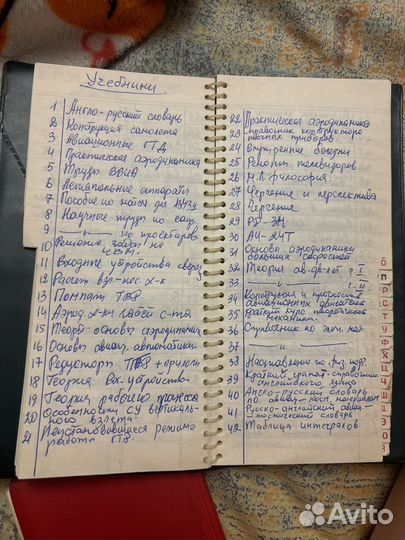 Учебники
1 Англо-русский словарь
2 Конструкция самолета
3 Авиационные ГТД
4 Практическая аэродинамика
5 Труды ВВИА
6 Летательные аппараты
7 Пособие по матем. для ВУЗа
8 Научные труды по
9 —"— по
10 Решение задач на ЦВМ.
11 Входные устройства сверхз
12 Расчет вз-п х-к
13 Помпаж ТВД
14 Аэрод х-ки с-та
15 Теорет основы аэродинамики
16 Основы авиац. автоматики
17 Редуктора ТВД +
18 Теория Вх. устройств
19 Теория рабочего процесса
20 Особенности СУ вертикаль-
ного взлета
21 Неустановившиеся режимы
работы ГТД
22 Практическая аэродинамика
23 Справочник конструктора
точных приборов
24 Внутренние болезни
25 Ремонт телевизоров
26 М.Л. философия
27 Черчение и перспектива
28 Черчение
29 РД-3М
30 АИ-24Т
31 Основы аэродинамики
больших скоростей
32 Теория ав-дв-лей т. I
33 —"— т. II
34 Конструкция и прочность
авиационных двигателей
35 Краткий курс теоретической
механики.
36 Справочник по
37 —"—
38 Наставление по физ. подг.
39 Краткий грамат. справочник
английского языка
40 Англо-русский словарь
по авиац-косм. материалам
41 Русско-английский авиа-
космический словарь
42 Таблица интегралов
б
П
Р
С
Т
У
Ф
Х
Ц
Ч
Ш
Щ
Э
Ю
Я
Avito